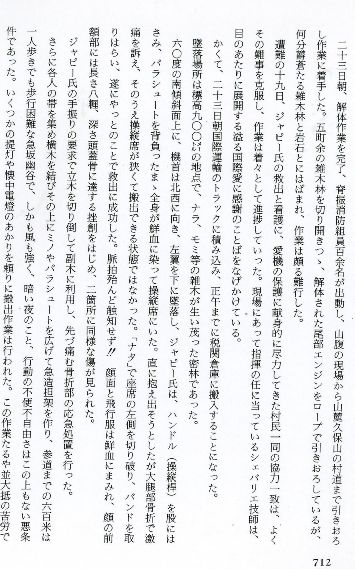 二十三日朝、解体作業を完了、脊振消防組員百余名が出動し、山腹の現場から山麓久保山の村道まで引きおろ
し作業に着手した。五町余の雑木林を切り開きつゝ、解体された尾部エンジンをロープで引きおろしているが、
何分欝蒼たる雑木林と岩石とにはばまれ、作業は頗る難行した。
遭難の十九日、ジャピー氏の救出と看護に、愛機の保護に献身的に尽力してきた村民一同の協力一致は、よく
その難事を克服し、作業は着々として進捗していった。現場にあって指揮の任に当っているシェバリエ技師は、
目のあたりに展開する溢る国際愛に感謝のことばをなげかけている。
かくて、二十三日朝国際運輸のトラックに積み込み、正午までに税関倉庫に搬入することになった。
墜落場所は標高九〇〇㍍の地点で、ナラ、モミ等の雑木が生い茂った密林であった。
六〇度の南傾斜面上に、機首は北西に向き、左翼を下に墜落し、ジャピー氏は、ハンドル(操縦桿)を股には
さみ、パラシュートを背負ったまゝ全身が鮮血に染って操縦席にいた。直に抱え出そうとしたが大腿部骨折で激
痛を訴え、そのうえ操縦席が狭くて搬出できる状態ではなかった。「ナタ」で座席の左側を切り破り、バンドを取
りはらい、遂にやっとのことで救出に成功した。脈拍殆んど触知せず!! 顔面と飛行服は鮮血にまみれ、顔の前
額部には長さ八糎、深さ頭蓋骨に達する挫創をはじめ、二箇所に同様な傷が見られた。
ジャピー氏の手振りの要求で立木を切り倒して副木に利用し、先づ痛む骨折部の応急処置を行った。
さらに各人の帯を集め横木を結びその上にミノやパラシュートを広げて急造担架を作り、参道までの六百米は
一人歩きでも歩行困難な急坂幽谷で、しかも風も強く、暗い夜のこと、行動の不便不自由さはこの上もない悪条
件であった。いくつかの提灯や懐中電灯のあかりを頼りに搬出作業は行われた。この作業たるや並大抵の苦労で
712